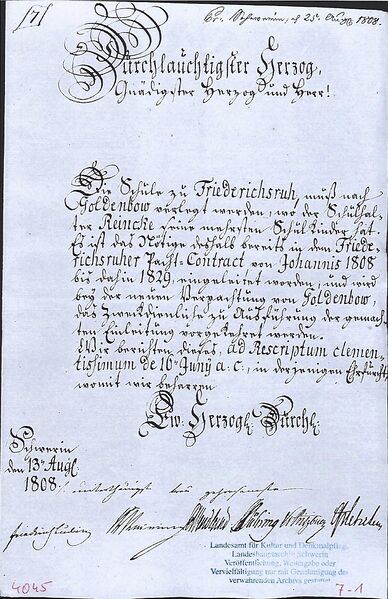 [7]
Pr. Schwerin, d 25. Aug. 1808.
Durchläuchtigster Herzog,
Gnädigster Herzog und Herr!
Die Schüle zu Friederichsruh, muß nach
Goldenbow verlegt werden, wo der Schulhal-
ter Reincke seine mehrsten Schulkinder hat.
Es ist das Nötige deshalb bereits in dem Friede-
richsruher Pacht-Contract von Johannis 1808
bis dahin 1829, eingeleitet worden, und wird
bey der neuen Verpachtung von Goldenbow,
das Zweckdienliche zu Ausführung der gemach-
ten Einleitung vorgekehret werden.
Wir berichten dieses, ad Rescriptum clemen-
tissimum de 10ten Juny a. c., in derjenigen Ehrfurcht,
womit wir beharren
Ew. Herzogl. Durchl.
Schwerin
den 13ten Augl.
1808.
unterthänigst treu gehorsamste
Landesamt für Kultur und Denkmalpflege
Landeshauptarchiv Schwerin
Veröffentlichung, Weitergabe oder
Vervielfältigung nur mit Genehmigung des
verwahrenden Archivs gestattet
4045
7-1